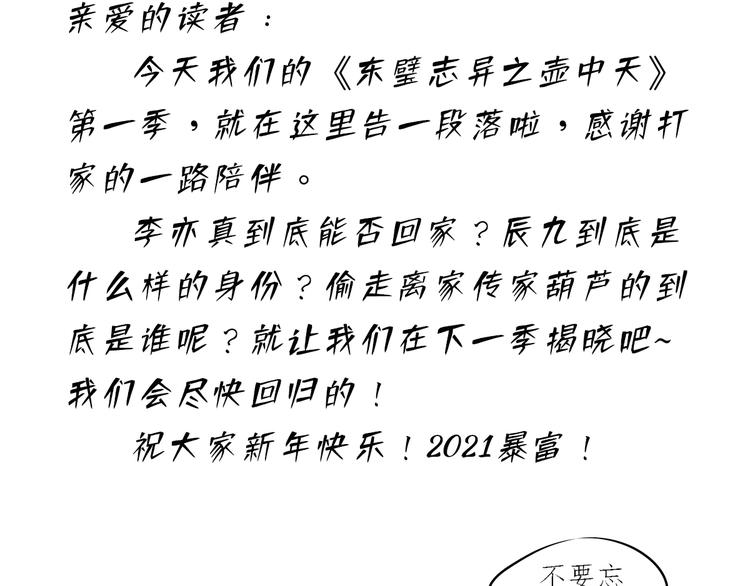 亲爱的读者：
今天我们的《东璧志异之壶中天》
第一季，就在这里告一段落啦，感谢打
家的一路陪伴。
李亦真到底能否回家？辰九到底是
什么样的身份？偷走离家传家葫芦的到
底是谁呢？就让我们在下一季揭晓吧~
我们会尽快回归的！
祝大家新年快乐！2021暴富！
不要忘